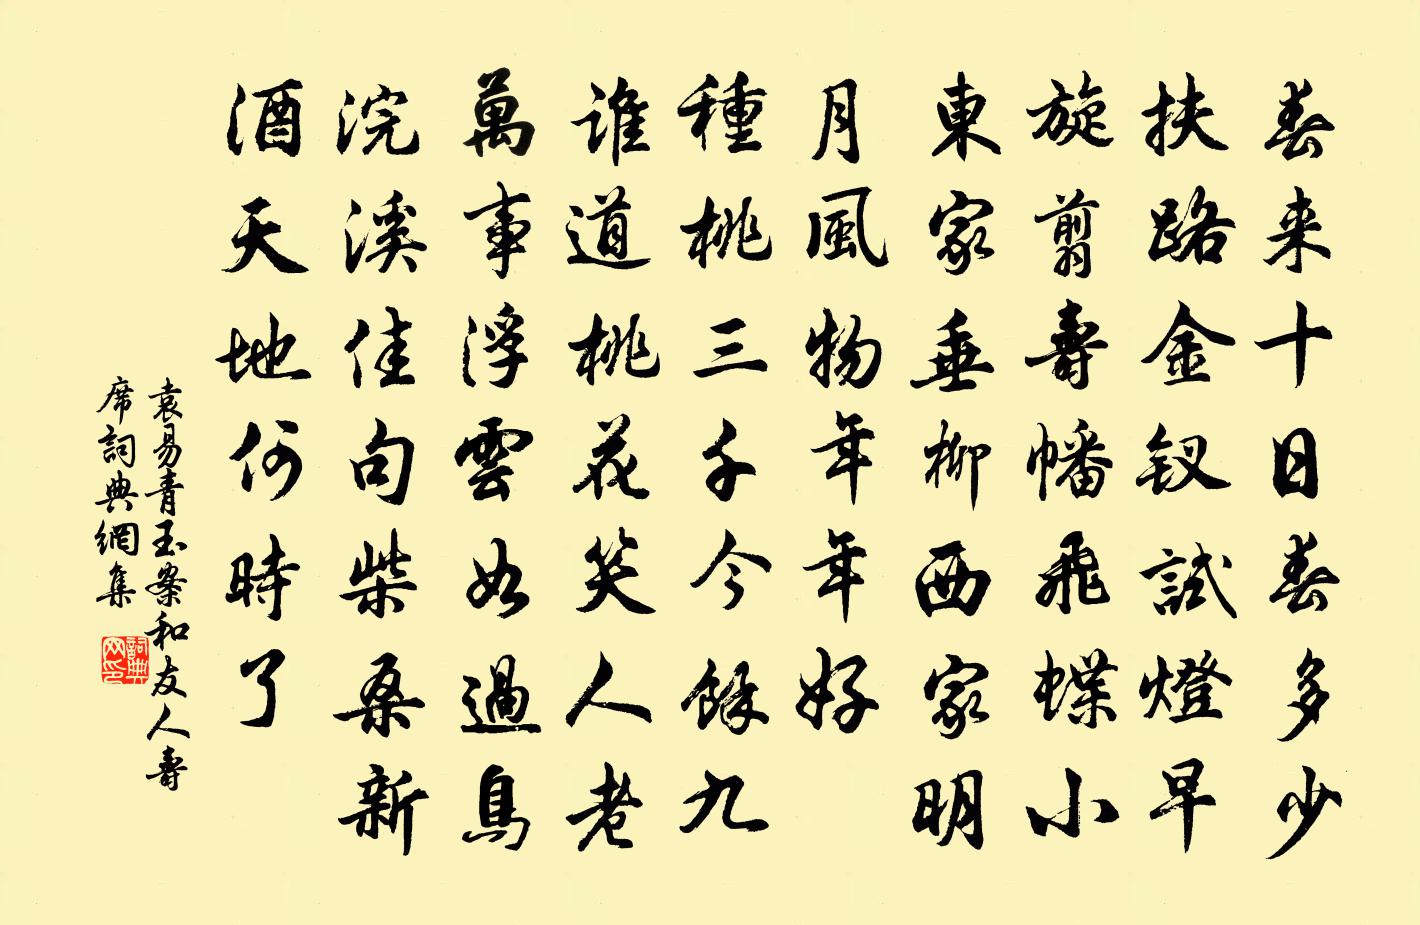 春来十日春多少
扶路金钗試燈早
旋翦壽幡飛蝶小
東家垂柳西家明
月風物年年好
種桃三千今餘九
誰道桃花笑人老
萬事浮雲如過鳥
浣溪佳句柴桑新
酒天地何時了
袁易青玉案和友人壽
席詞典網集
詞典
网印